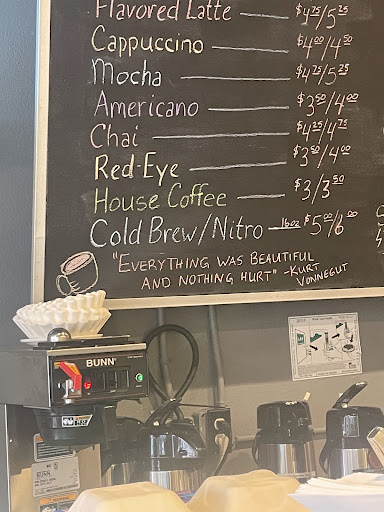 Flavored Latte $4.75/5.25
Cappuccino $4.00/4.50
Mocha $4.75/5.25
Americano $3.50/4.00
Chai $4.25/4.75
Red-Eye $3.50/4.00
House Coffee $3/3.50
Cold Brew/Nitro 16oz $5.00/6.00
"EVERYTHING WAS BEAUTIFUL
AND NOTHING HURT" -KURT
VONNEGUT
BUNN
BUNN